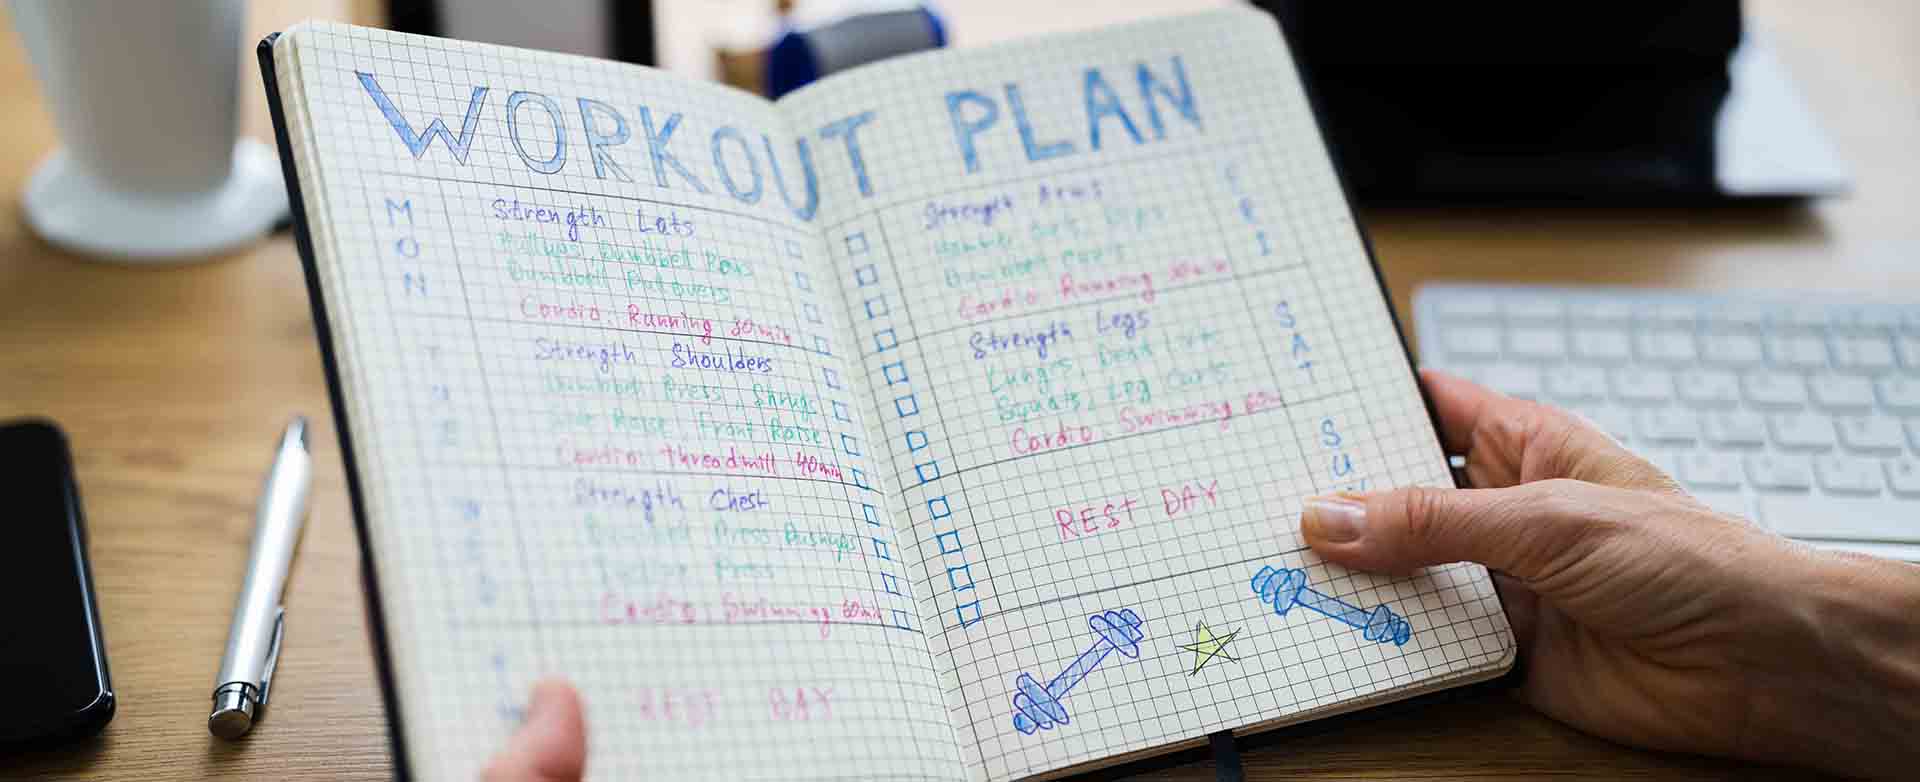 WORKOUT PLAN
MON
Strength Lats
Pullups, Dumbbell Rows
Dumbbell Pullovers
Cardio. Running 30min
TUE
Strength Shoulders
Dumbbell Press, Shrugs
Side Raise, Front Raise
Cardio threadmill 40min
Strength Chest
Dumbbell Press, Pushups
Press
Cardio. Swimming 60min
REST DAY
FRI
Strength Arms
Dumbbell Curls
Cardio Running 30min
SAT
Strength Legs
Lunges, Dead Lift
Squats, Leg Curls
Cardio. Swimming 60min
SU
REST DAY